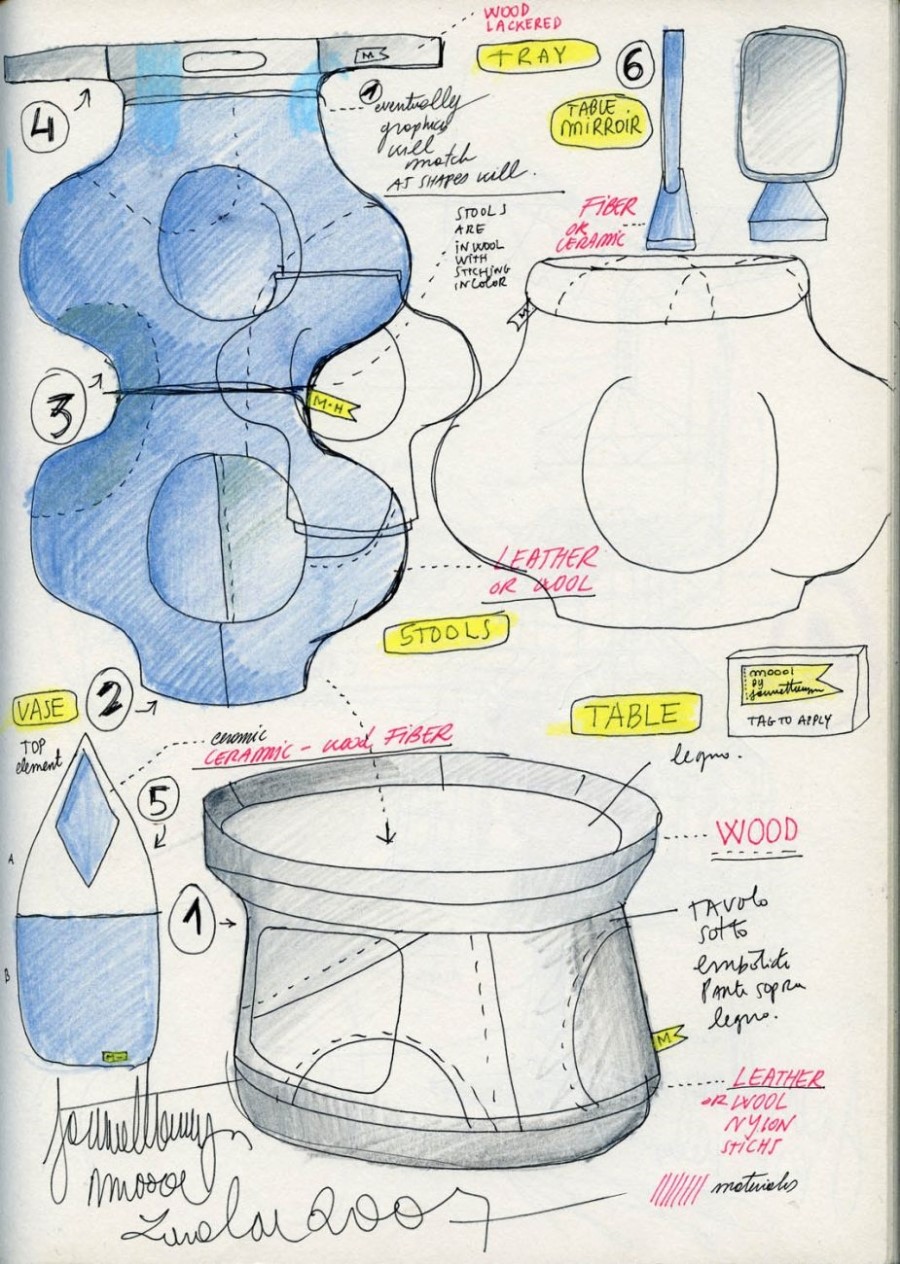 WOOD
LACKERED
TRAY
M
4
1
eventually
graphics
will
match
AS SHAPES will.
6
TABLE.
MIRROIR
FIBER
OR
CERAMIC
STOOLS
ARE
IN WOOL
WITH
STICHING
IN COLOR
M
3
M.H
LEATHER
OR WOOL
STOOLS
moooi
by
TAG TO APPLY
VASE
2
TOP
element
ceramic
CERAMIC - wood FIBER
TABLE
legno.
5
A
WOOD
1
TAVOLO
sotto
PARTE sopra
legno.
B
M
M
LEATHER
OR WOOL
NYLON
STICHS
materials
2007